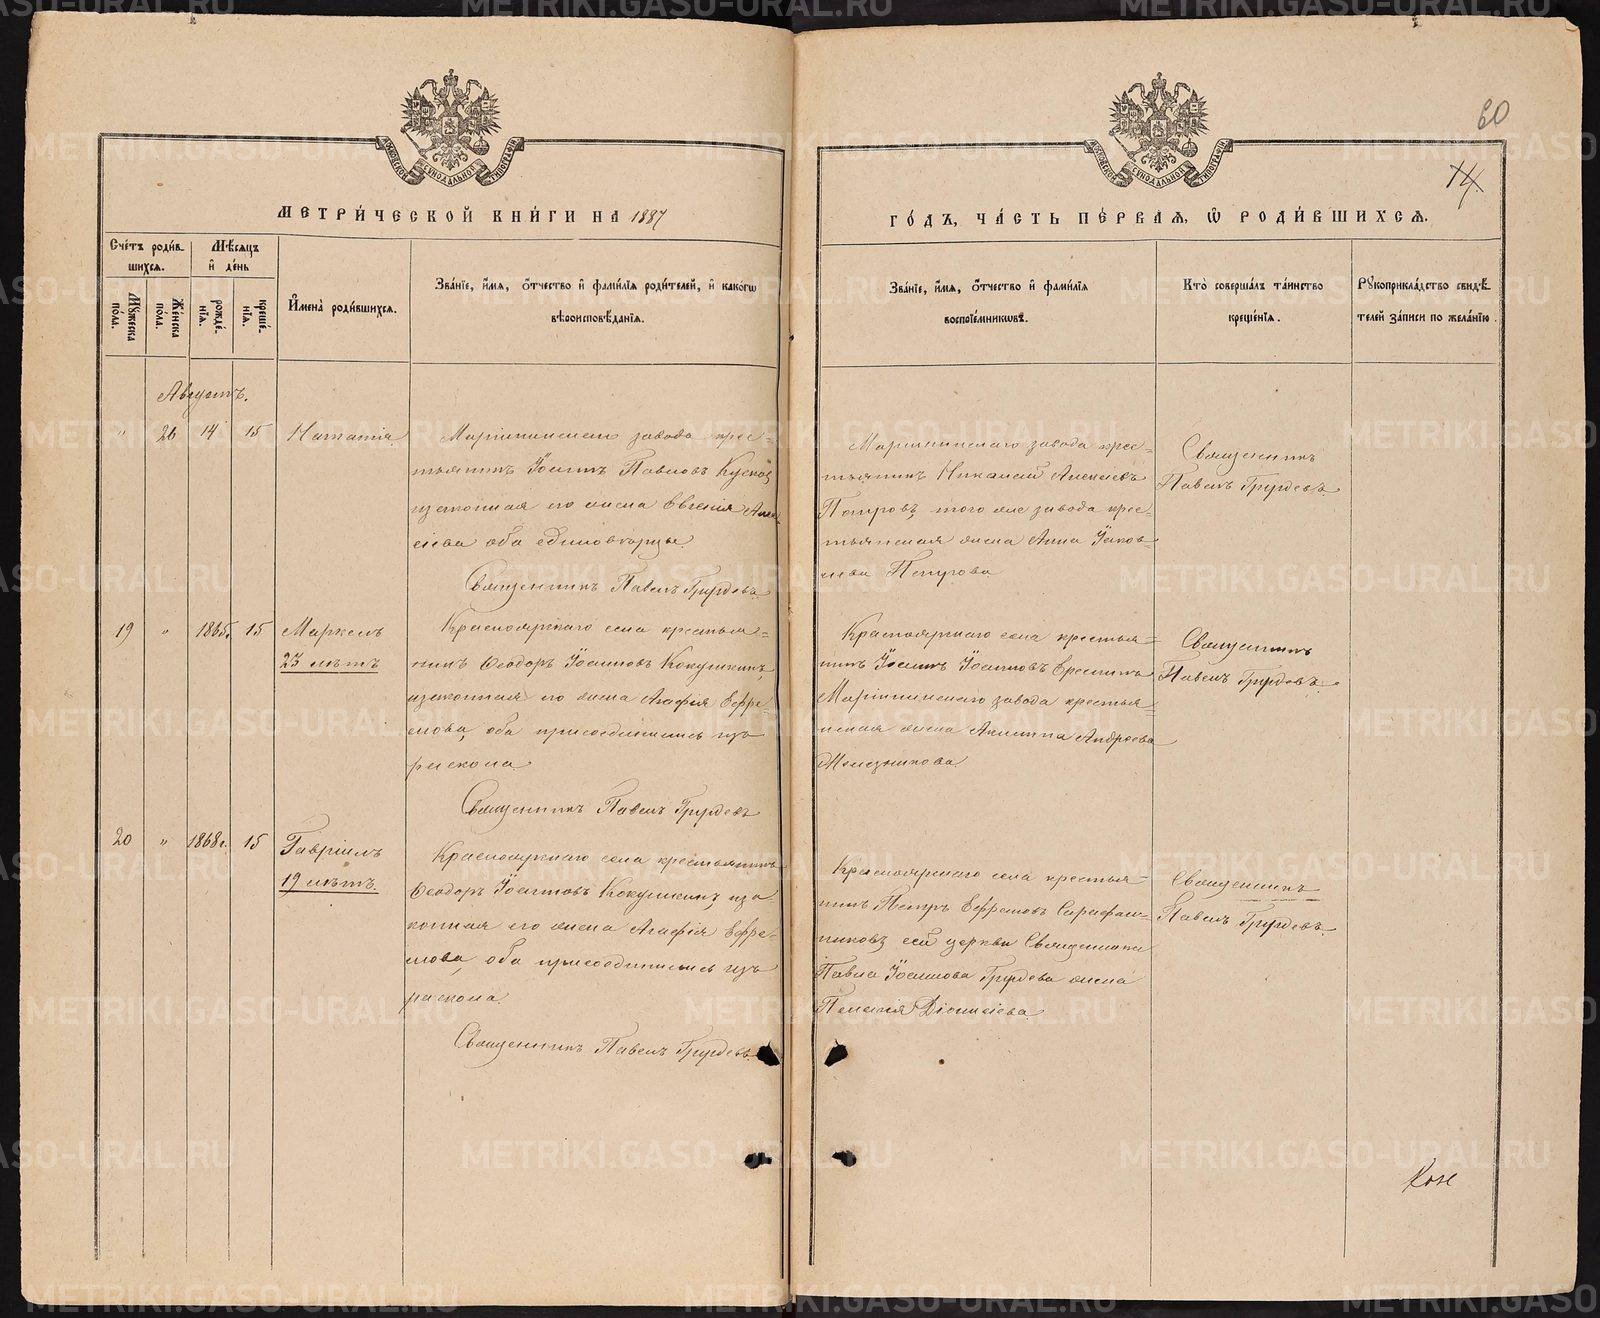 60
14
МЕТРИЧЕСКОЙ КНИГИ НА 1887
ГОДЪ, ЧАСТЬ ПЕРВАЯ, Ѡ РОДИВШИХСЯ.
Счетъ родив-
шихся.
Мужеска пола.
Женска пола.
Мѣсяцъ
и день
рожде-
нія.
креще-
нія.
Имена родившихся.
Званіе, имя, отчество и фамилія родителей, и какогѡ
вѣроисповѣданія.
Званіе, имя, отчество и фамилія
воспріемниковъ.
Кто совершалъ таинство
крещенія.
Рукоприкладство свидѣ-
телей записи по желанію.
Августъ.
" 26 14 15 Наталія
Маріинскаго завода крес-
тьянинъ Іоаннъ Павловъ Кусковъ
и законная его жена Евгенія Алек-
сіева оба единовѣрцы.
Священникъ Павелъ Груздевъ
Маріинскаго завода крес-
тьянинъ Николай Алексіевъ
Петровъ, того же завода крес-
тьянская жена Анна Іаков-
лева Петрова
Священникъ
Павелъ Груздевъ
19 " 1865г. 15 Маркелъ
23 лѣтъ
Красноярскаго села крестья-
нинъ Ѳеодоръ Іоанновъ Кокушкинъ,
и законная его жена Агафія Ефре-
мова, оба присоединились изъ
раскола
Священникъ Павелъ Груздевъ
Красноярскаго села крестья-
нинъ Іоаннъ Іоанновъ Ереминъ
Маріинскаго завода крестья-
нская жена Андреева
Священникъ
Павелъ Груздевъ.
20 " 1868г. 15 Гавріилъ
19 лѣтъ.
Красноярскаго села крестьянинъ
Ѳеодоръ Іоанновъ Кокушкинъ, и за-
конная его жена Агафія Ефре-
мова, оба присоединились изъ
раскола.
Священникъ Павелъ Груздевъ.
Красноярскаго села крестья-
нинъ Петръ Ефремовъ Сарафан-
никовъ, сей церкви Священника
Павла Іоаннова Груздева жена
Пелагія Діонисіева.
Священникъ
Павелъ Груздевъ.
METRIKI.GASO-URAL.RU